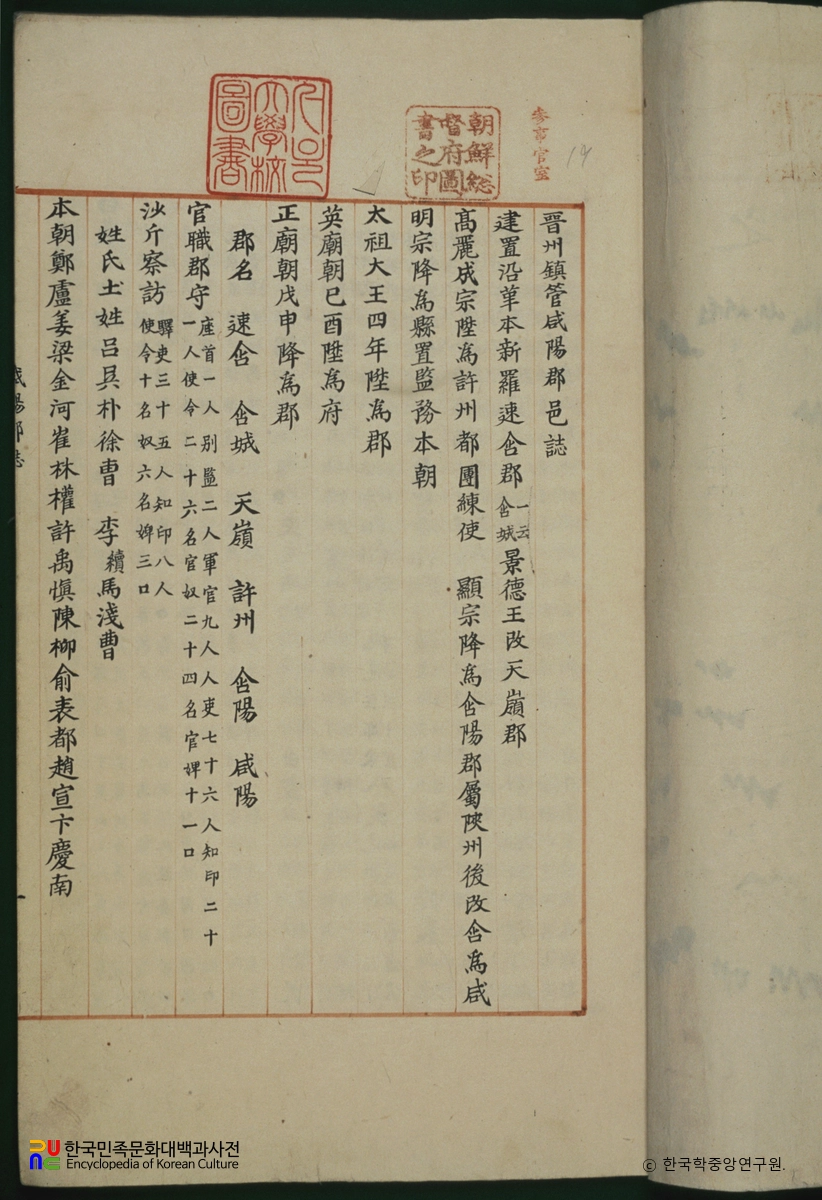 參事官室
19
朝鮮総督府圖書之印
大學校圖書
晋州鎭管咸陽郡邑誌
建置沿革本新羅速含郡一云含城景德王改天嶺郡
髙麗成宗陞爲許州都團練使 顯宗降爲含陽郡屬陜州後改含爲咸
明宗降爲縣置監務本朝
太祖大王四年陞爲郡
英廟朝己酉陞爲府
正廟朝戊申降爲郡
郡名 速含 含城 天嶺 許州 含陽 咸陽
官職郡守座首一人别監二人軍官九人人吏七十六人知印二十一人使令二十六名官奴二十四名官婢十一口
沙斤察訪驛吏三十五人知印八人使令十名奴六名婢三口
姓氏土姓呂吳朴徐曺 李續馬淺曹
本朝鄭盧姜梁金河崔林權許禹愼陳柳俞表都趙宣卞慶南
咸陽郡誌
한국민족문화대백과사전
Encyclopedia of Korean Culture
© 한국학중앙연구원.